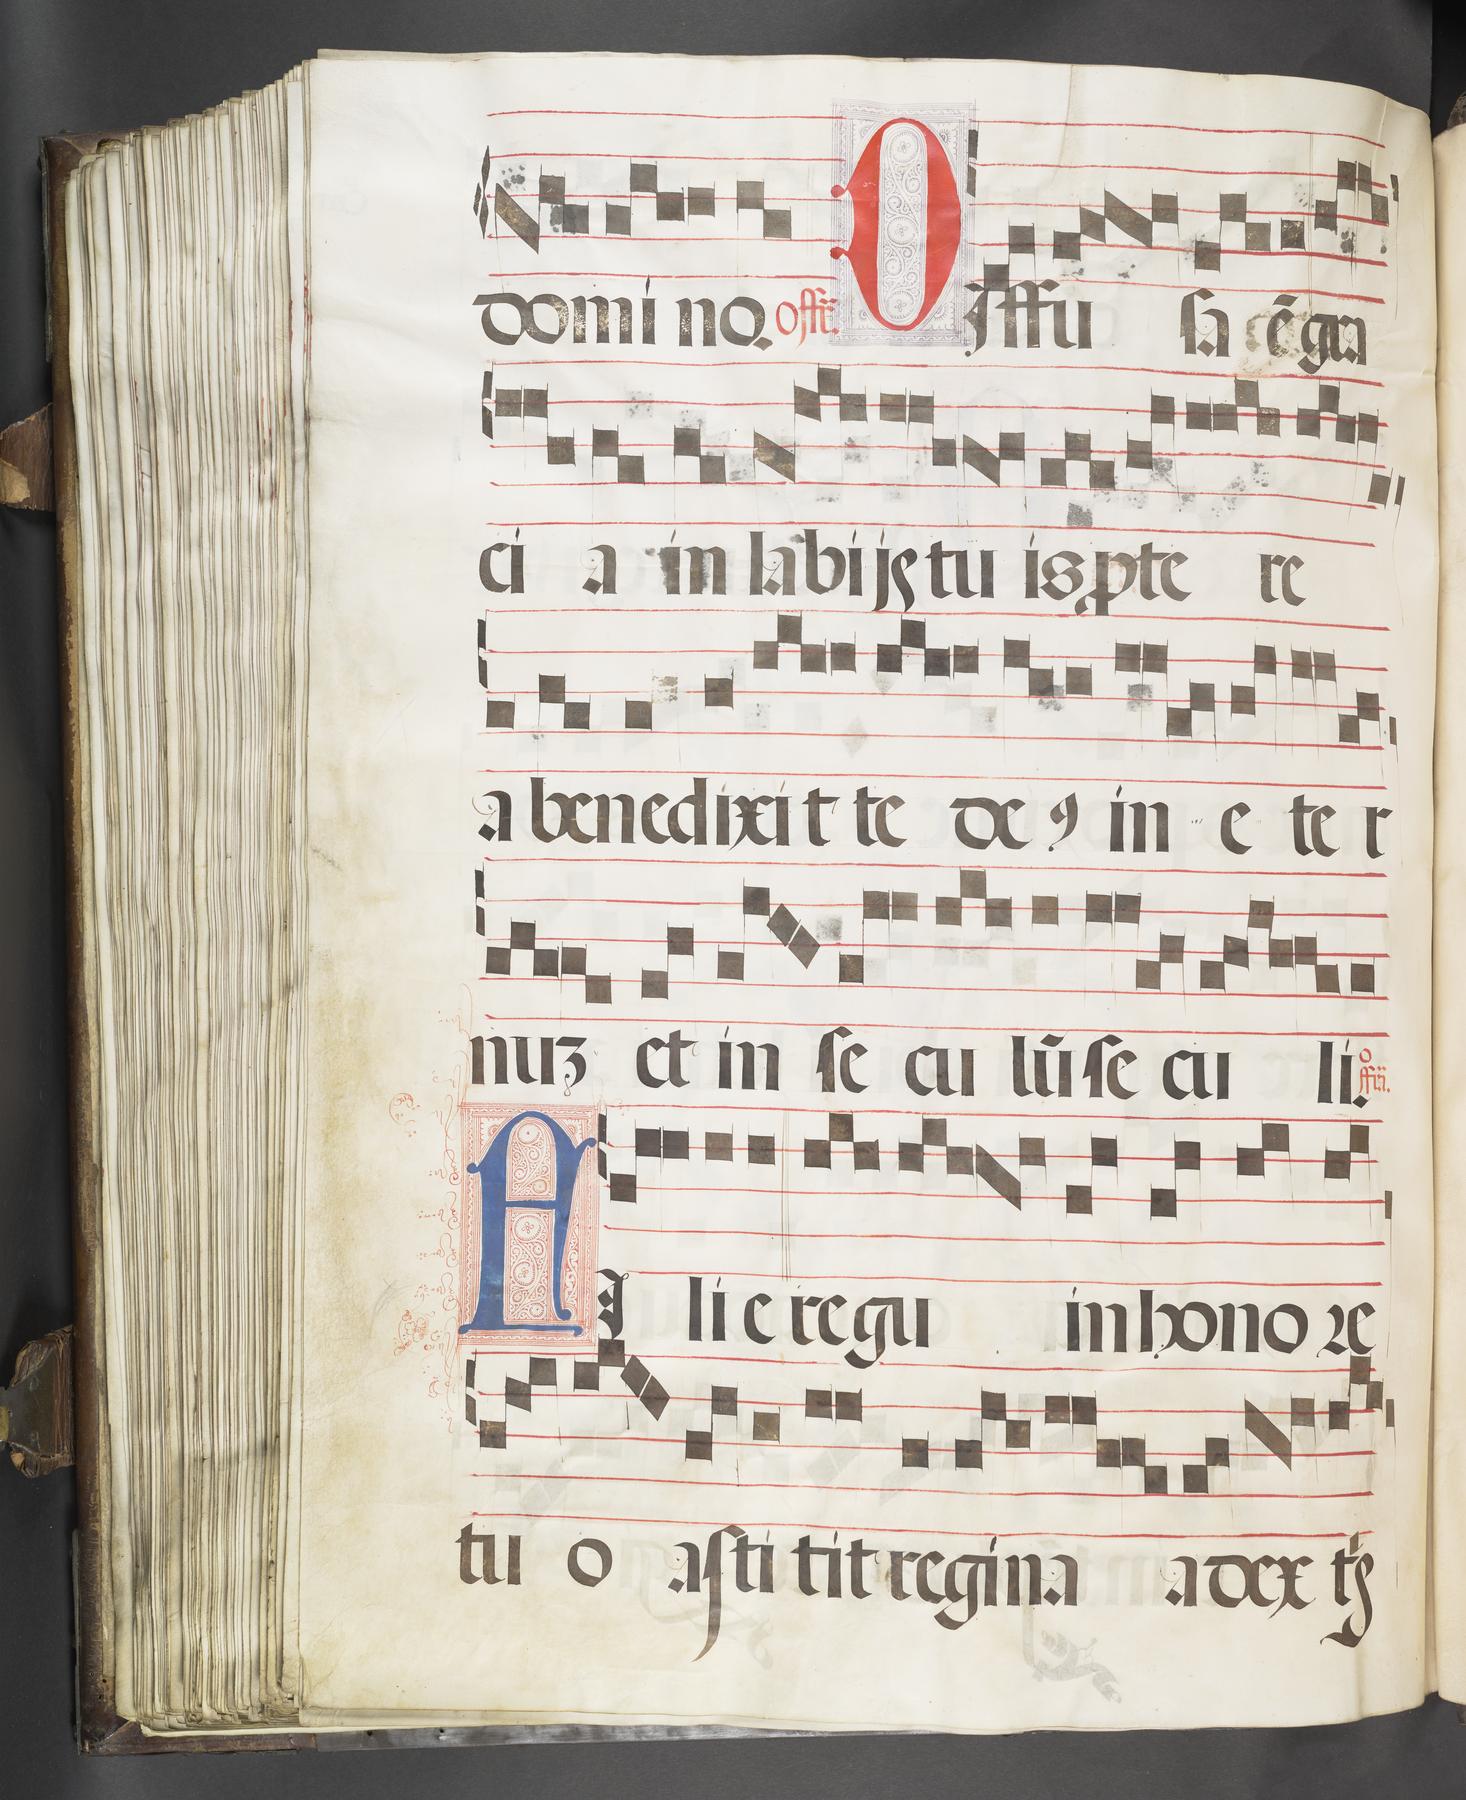 domino. offr̃. Diffu sa ẽ gra
ci a in labijs tu is ꝓpte re
a benedixit te de9 in e ter
nuʒ et in se cu lũ se cu li. offr̃.
FI li e regũ in hono re
tu o astitit regina a dex tꝭ